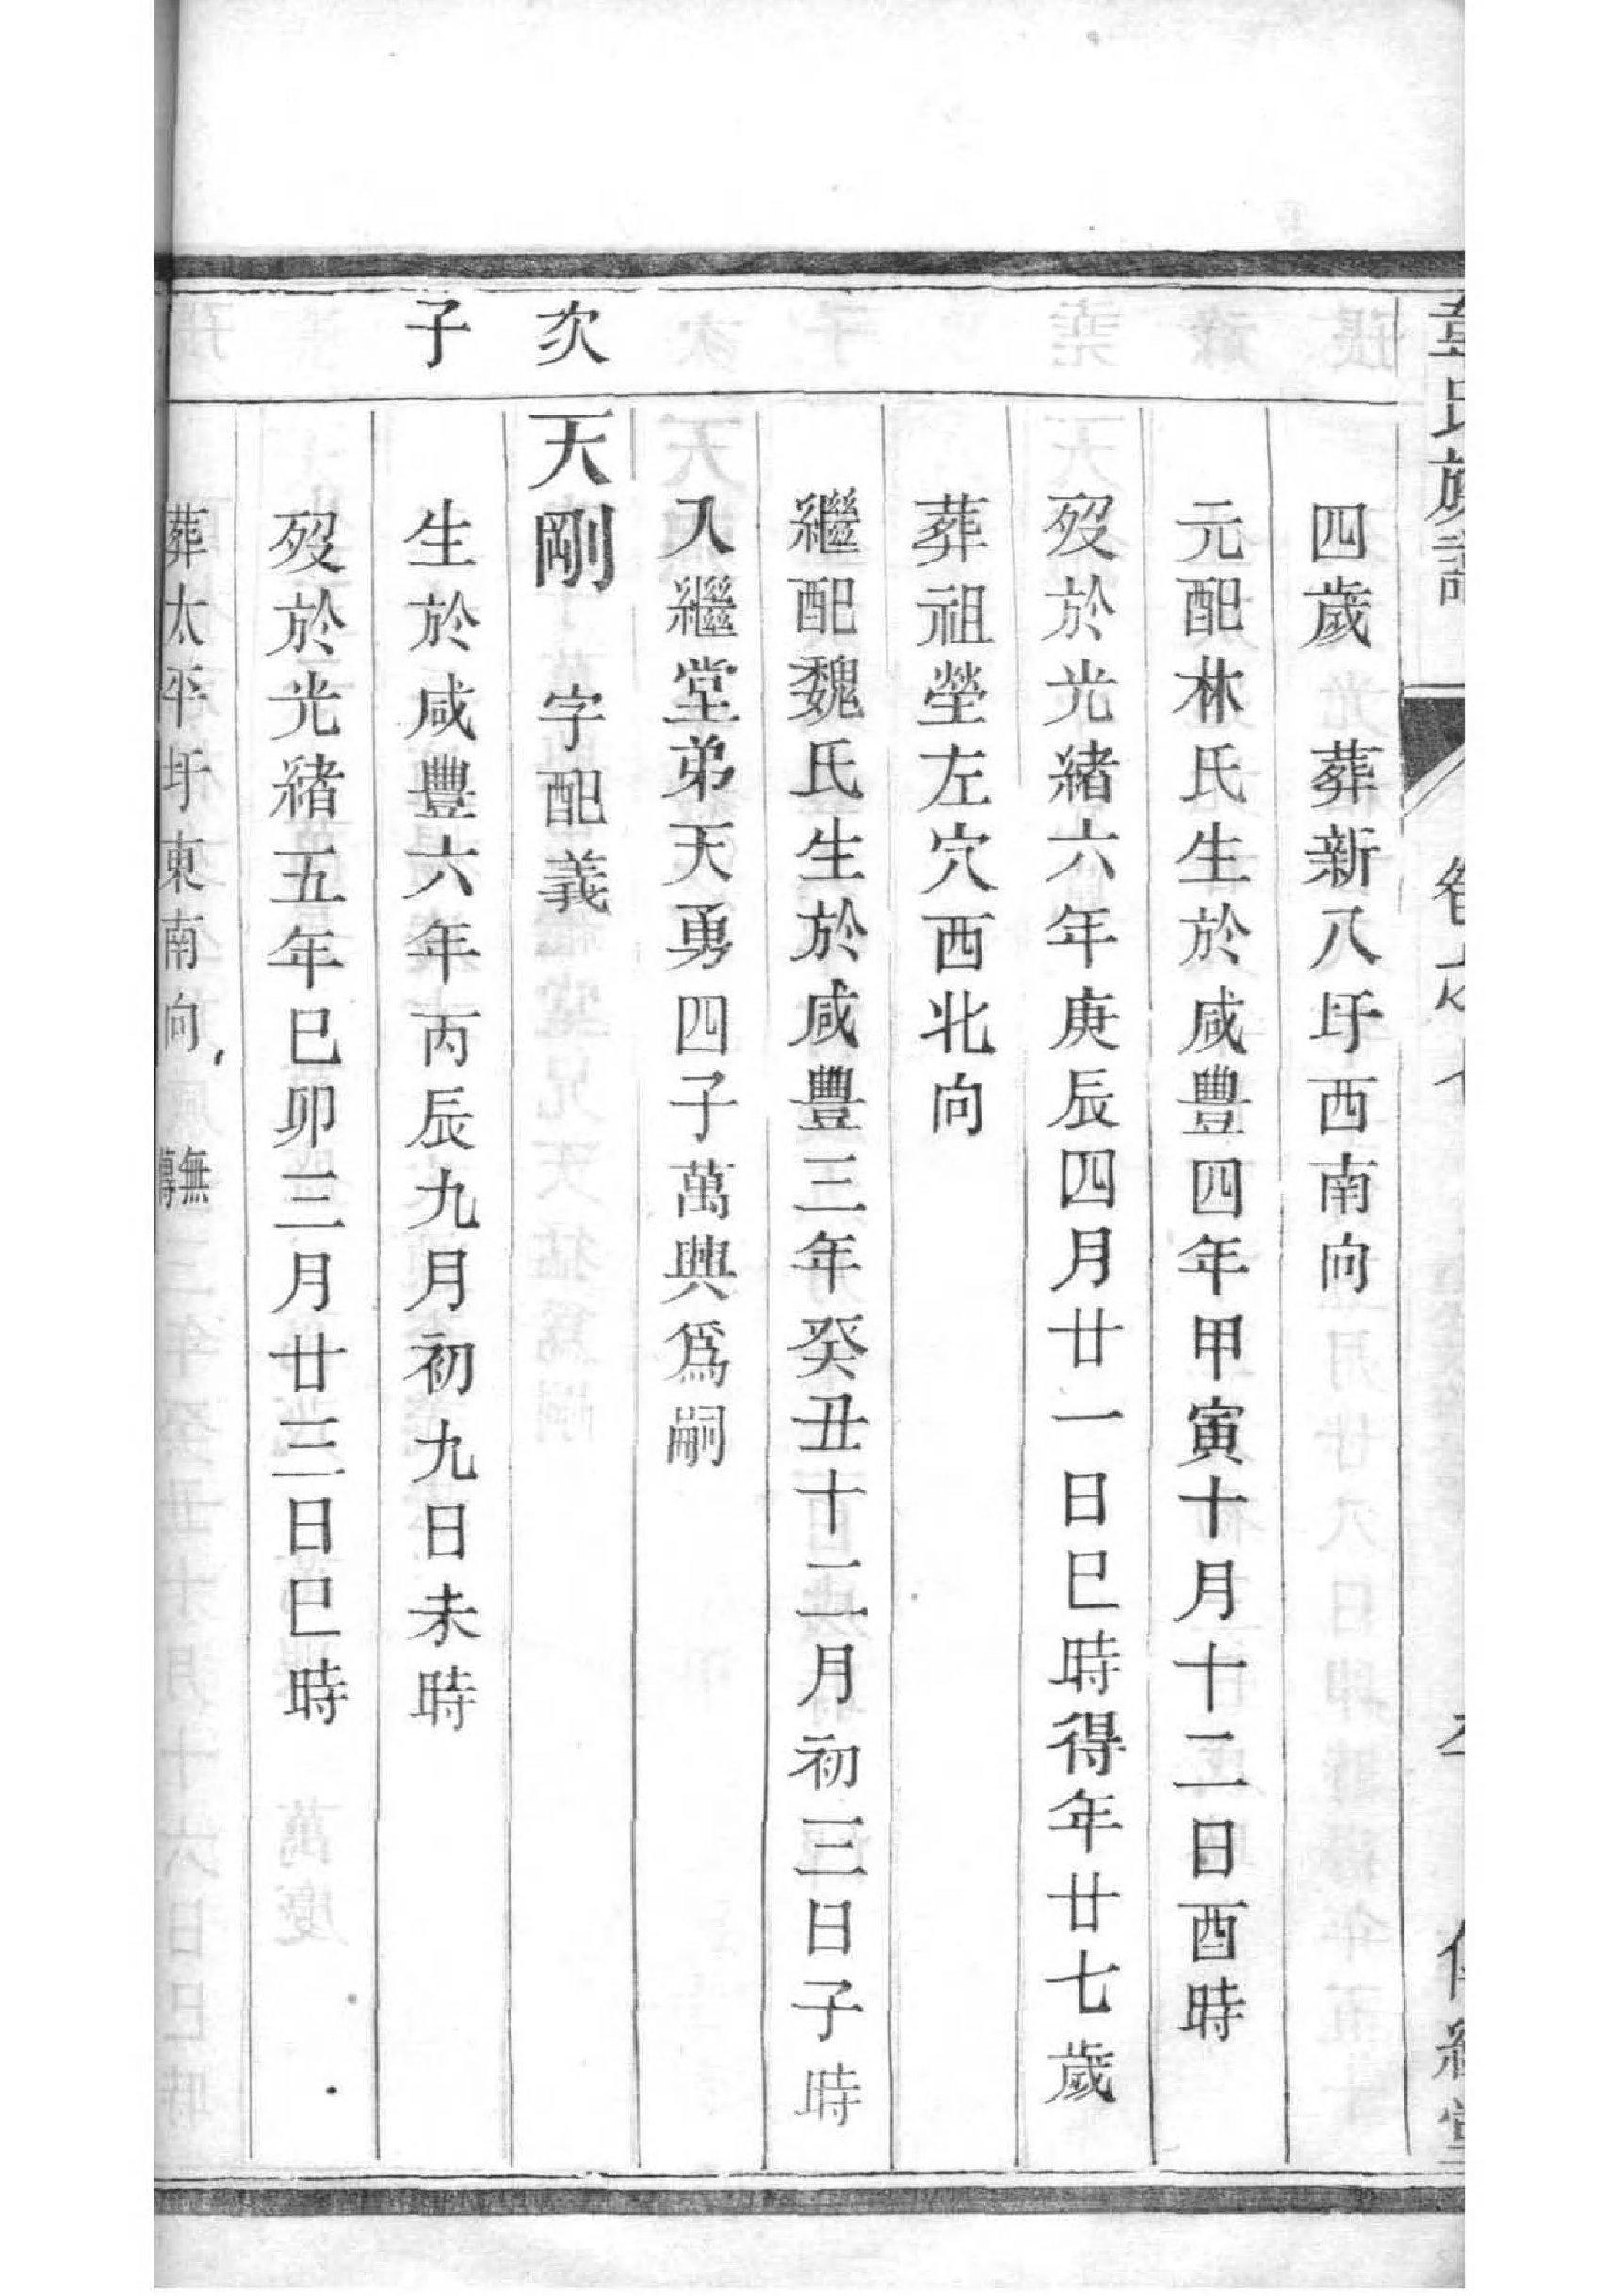 四歲　葬新八圩西南向
元配林氏生於咸豐四年甲寅十月十二日酉時
歿於光緒六年庚辰四月廿一日巳時得年廿七歲
葬祖塋左穴西北向
繼配魏氏生於咸豐三年癸丑十二月初三日子時
入繼堂弟天勇四子萬興爲嗣
次
子
天剛　字配義
生於咸豐六年丙辰九月初九日未時
歿於光緒五年巳卯三月廿三日巳時
葬太平圩東南向　無傳